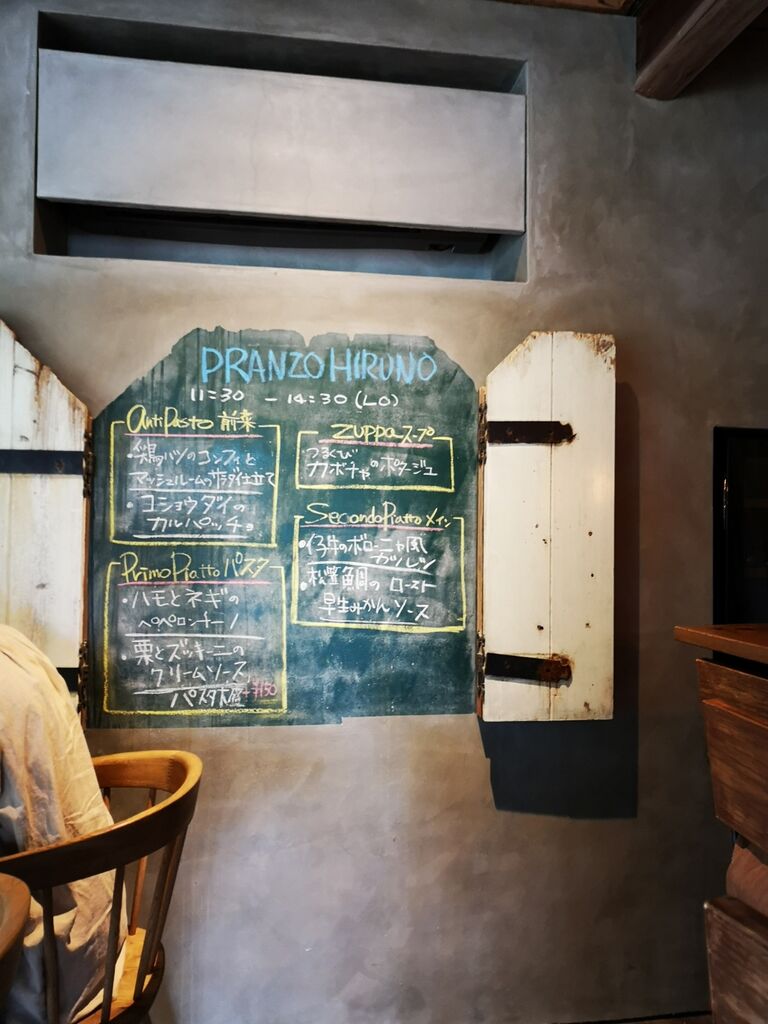 PRANZO HIRUNO
11:30 - 14:30 (LO)
AntiPasto 前菜
・鶏ハツのコンフィと
マッシュルームのサラダ仕立て
・コショウダイの
カルパッチョ
Primo Piatto パスタ
・ハモとネギの
ペペロンチーノ
・栗とズッキーニの
クリームソース
パスタ大盛+¥150
Zuppa スープ
カボチャのポタージュ
Secondo Piatto メイン
・仔牛のボローニャ風
カツレツ
・松笠鯛のロースト
早生みかんソース